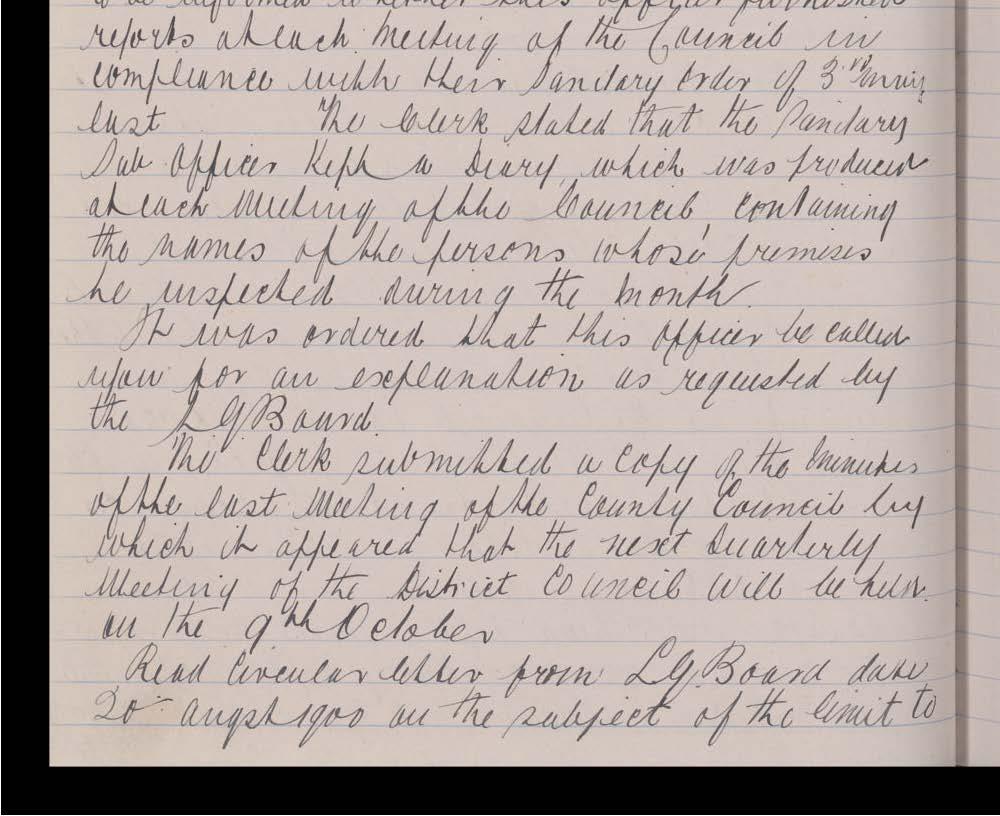 to be informed whether this officer furnished
reports at each Meeting of the Council in
compliance with their Sanitary Order of 3rd
last The Clerk stated that the Sanitary
Sub Officer Kept a Diary, which was produced
at each Meeting of the Council, containing
the names of the persons whose premises
he inspected during the Month.
It was ordered that this Officer be called
upon for an explanation as requested by
the LGBoard.
The Clerk submitted a Copy of the Minutes
of the last Meeting of the County Council by
which it appeared that the next Quarterly
Meeting of the District Council will be held
on the 9th October
Read Circular letter from LGBoard date
20 Augst 1900 on the subject of the limit to